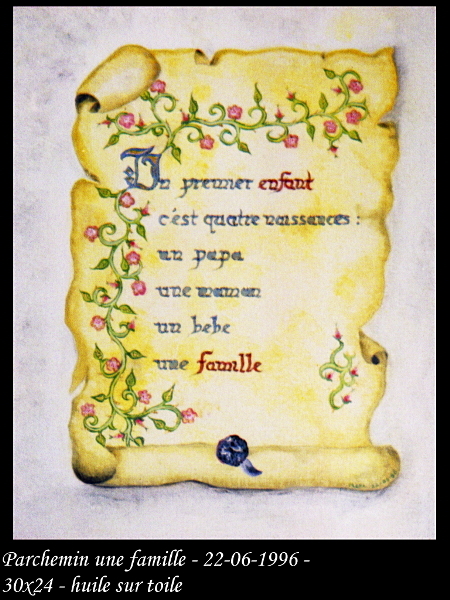 Un premier enfant
c'est quatre naissances :
un papa
une maman
un bebe
une famille
Parchemin une famille - 22-06-1996 -
30x24 - huile sur toile